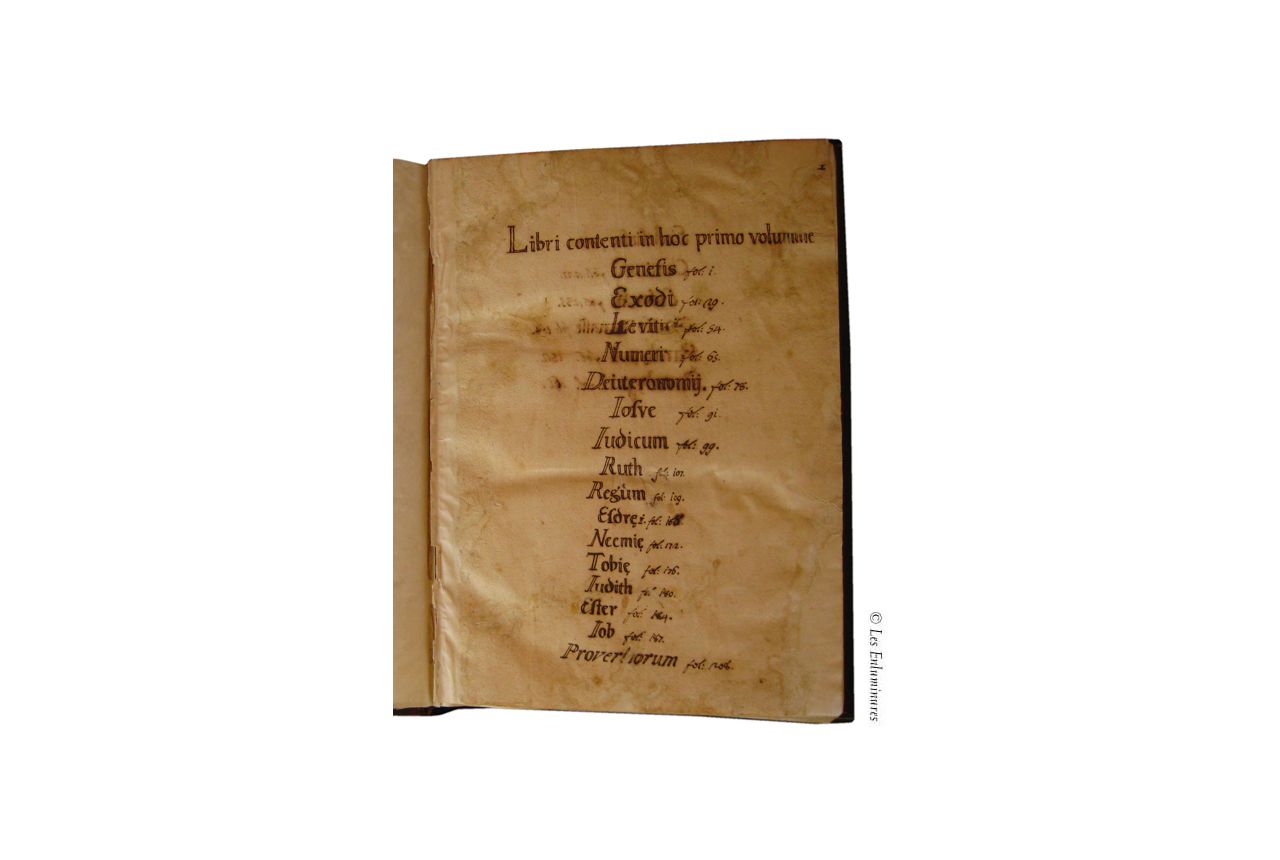 1
Libri contenti in hoc primo volumine
Geneſis fol: 1.
Exodi fol: 29.
Levitici fol: 54.
Numeri fol: 65.
Deuteronomij. fol: 78.
Ioſve fol: 91.
Iudicum fol: 99.
Ruth fol: 107.
Regum fol: 109.
Eſdrę fol:
Neemię fol: 172.
Tobię fol: 176.
Iudith fol 180.
Eſter fol: 184.
Iob fol: 187.
Proverbiorum fol:
© Les Enluminures